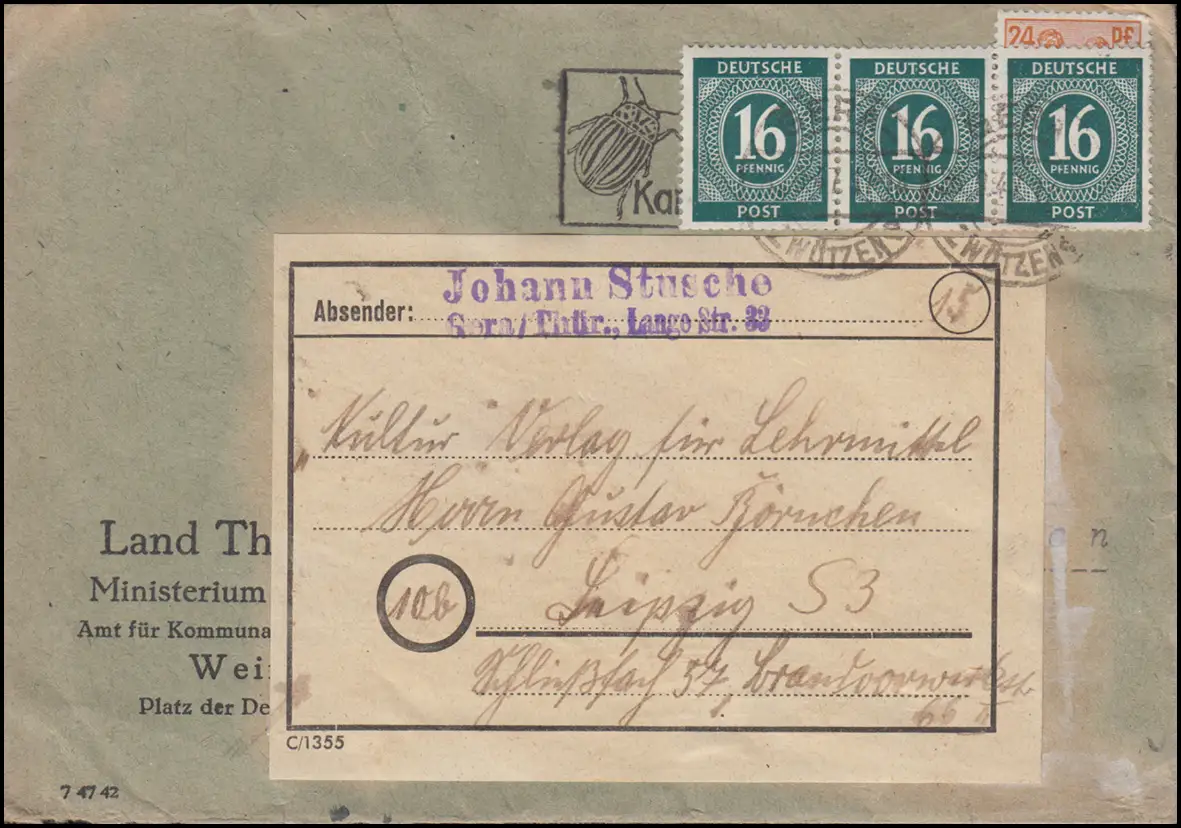 24 Pf
DEUTSCHE DEUTSCHE DEUTSCHE
16 16 16
PFENNIG PFENNIG PFENNIG
POST POST POST
Ka
WÜTZEN WÜTZEN
Johann Stusche
Absender:
Gera/Thür., Lange Str. 33
15
"Kultur Verlag für Lehrmittel
Herrn Gustav Börnchen
10b Leipzig S3
Schließfach 57, Brandvorwerkstr.
66 II
C/1355
Land Th
Ministerium
Amt für Kommuna
Wei
Platz der De
n
7 47 42